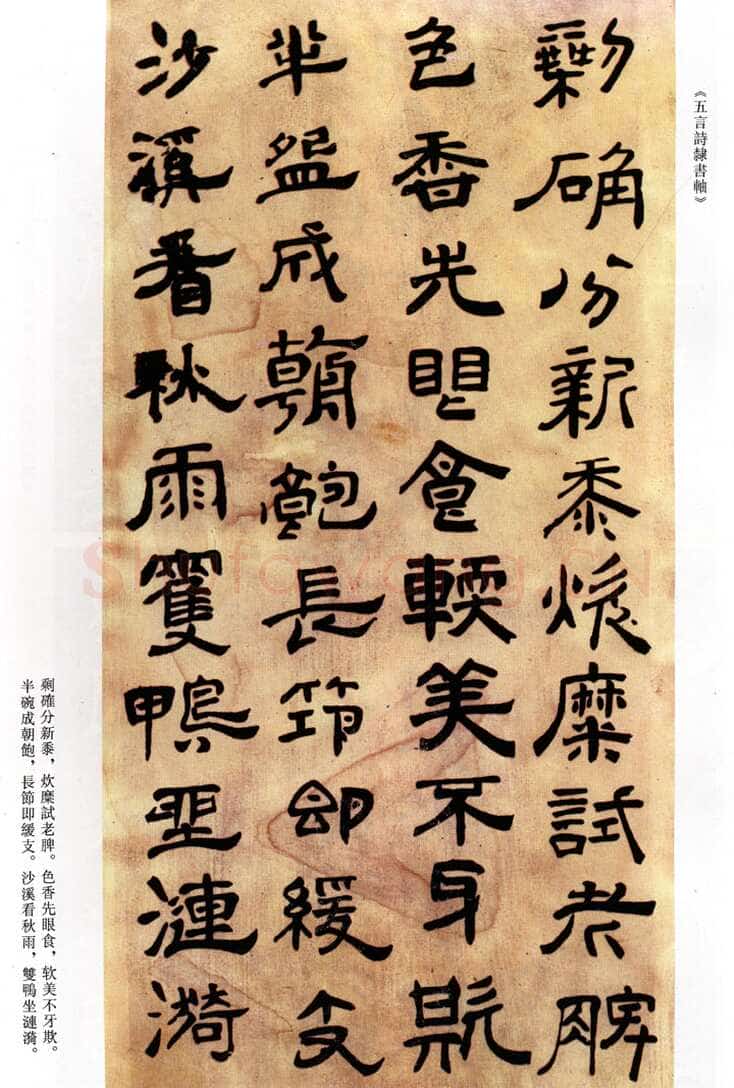 《五言詩隸書軸》
剩确分新黍炊糜試老脾
色香先眼食輭美不牙欺
半盌成朝飽長節即緩支
沙溪看秋雨雙鴨坐漣漪
剩確分新黍，炊糜試老脾。色香先眼食，软美不牙欺。
半碗成朝飽，長節即緩支。沙溪看秋雨，雙鴨坐漣漪。